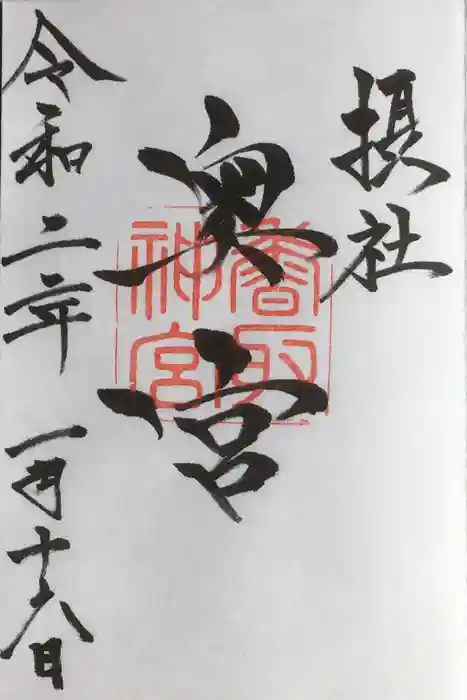 摂社
奥宮
香取神宮
令和二年一月十六日